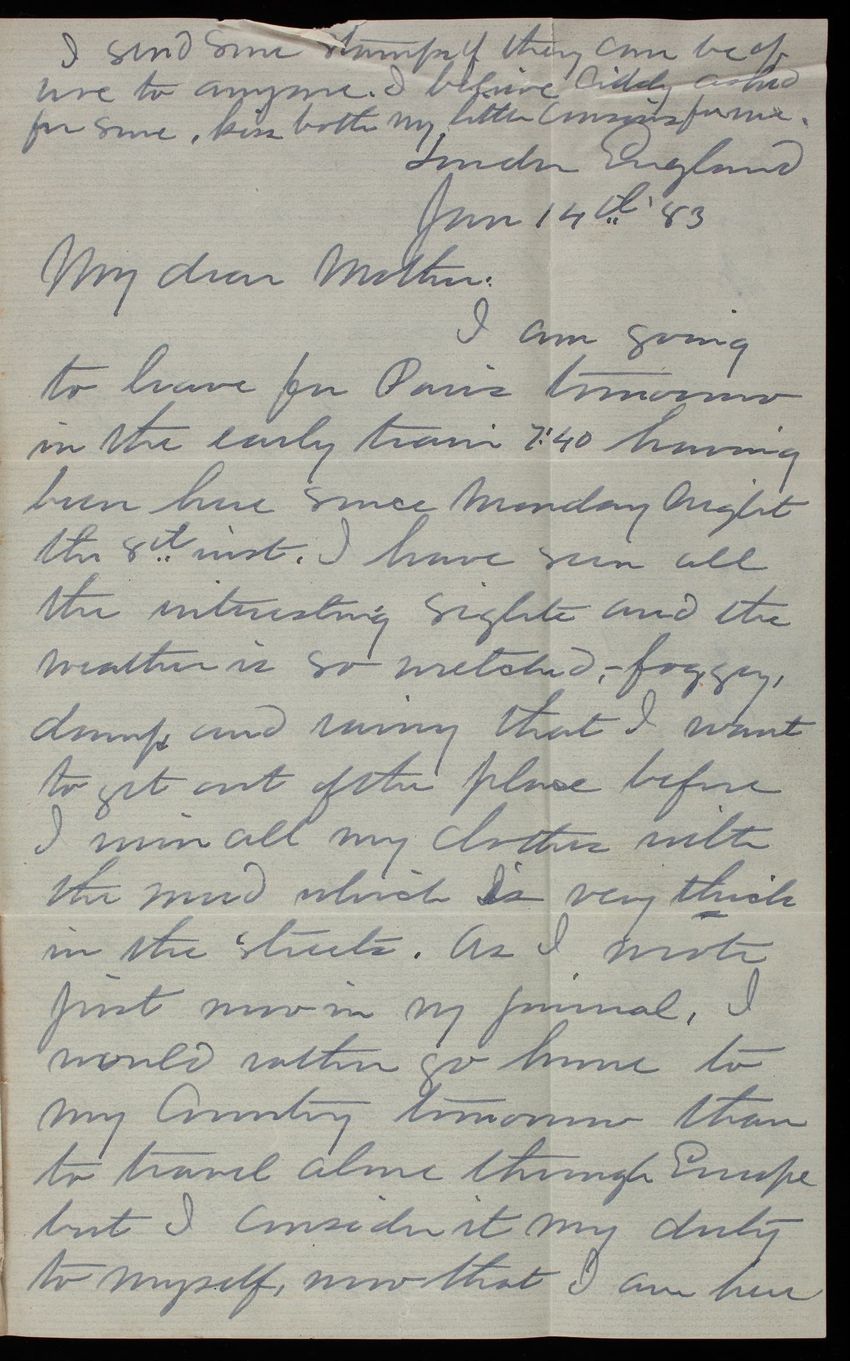 I send some stamps if they can be of
use to anyone. I believe Ciddy asked
for some, kiss both my little Cousins for me.
London England
Jan 14th '83
My dear Mother:
I am going
to leave for Paris tomorrow
in the early train 7:40 having
been here since Monday night
the 8th inst. I have seen all
the interesting sights and the
weather is so wretched, - foggy,
damp, and rainy that I want
to get out of the place before
I ruin all my clothes with
the mud which is very thick
in the streets. As I wrote
just now in my journal, I
would rather go home to
my Country tomorrow than
to travel alone through Europe
but I consider it my duty
to myself, now that I am here